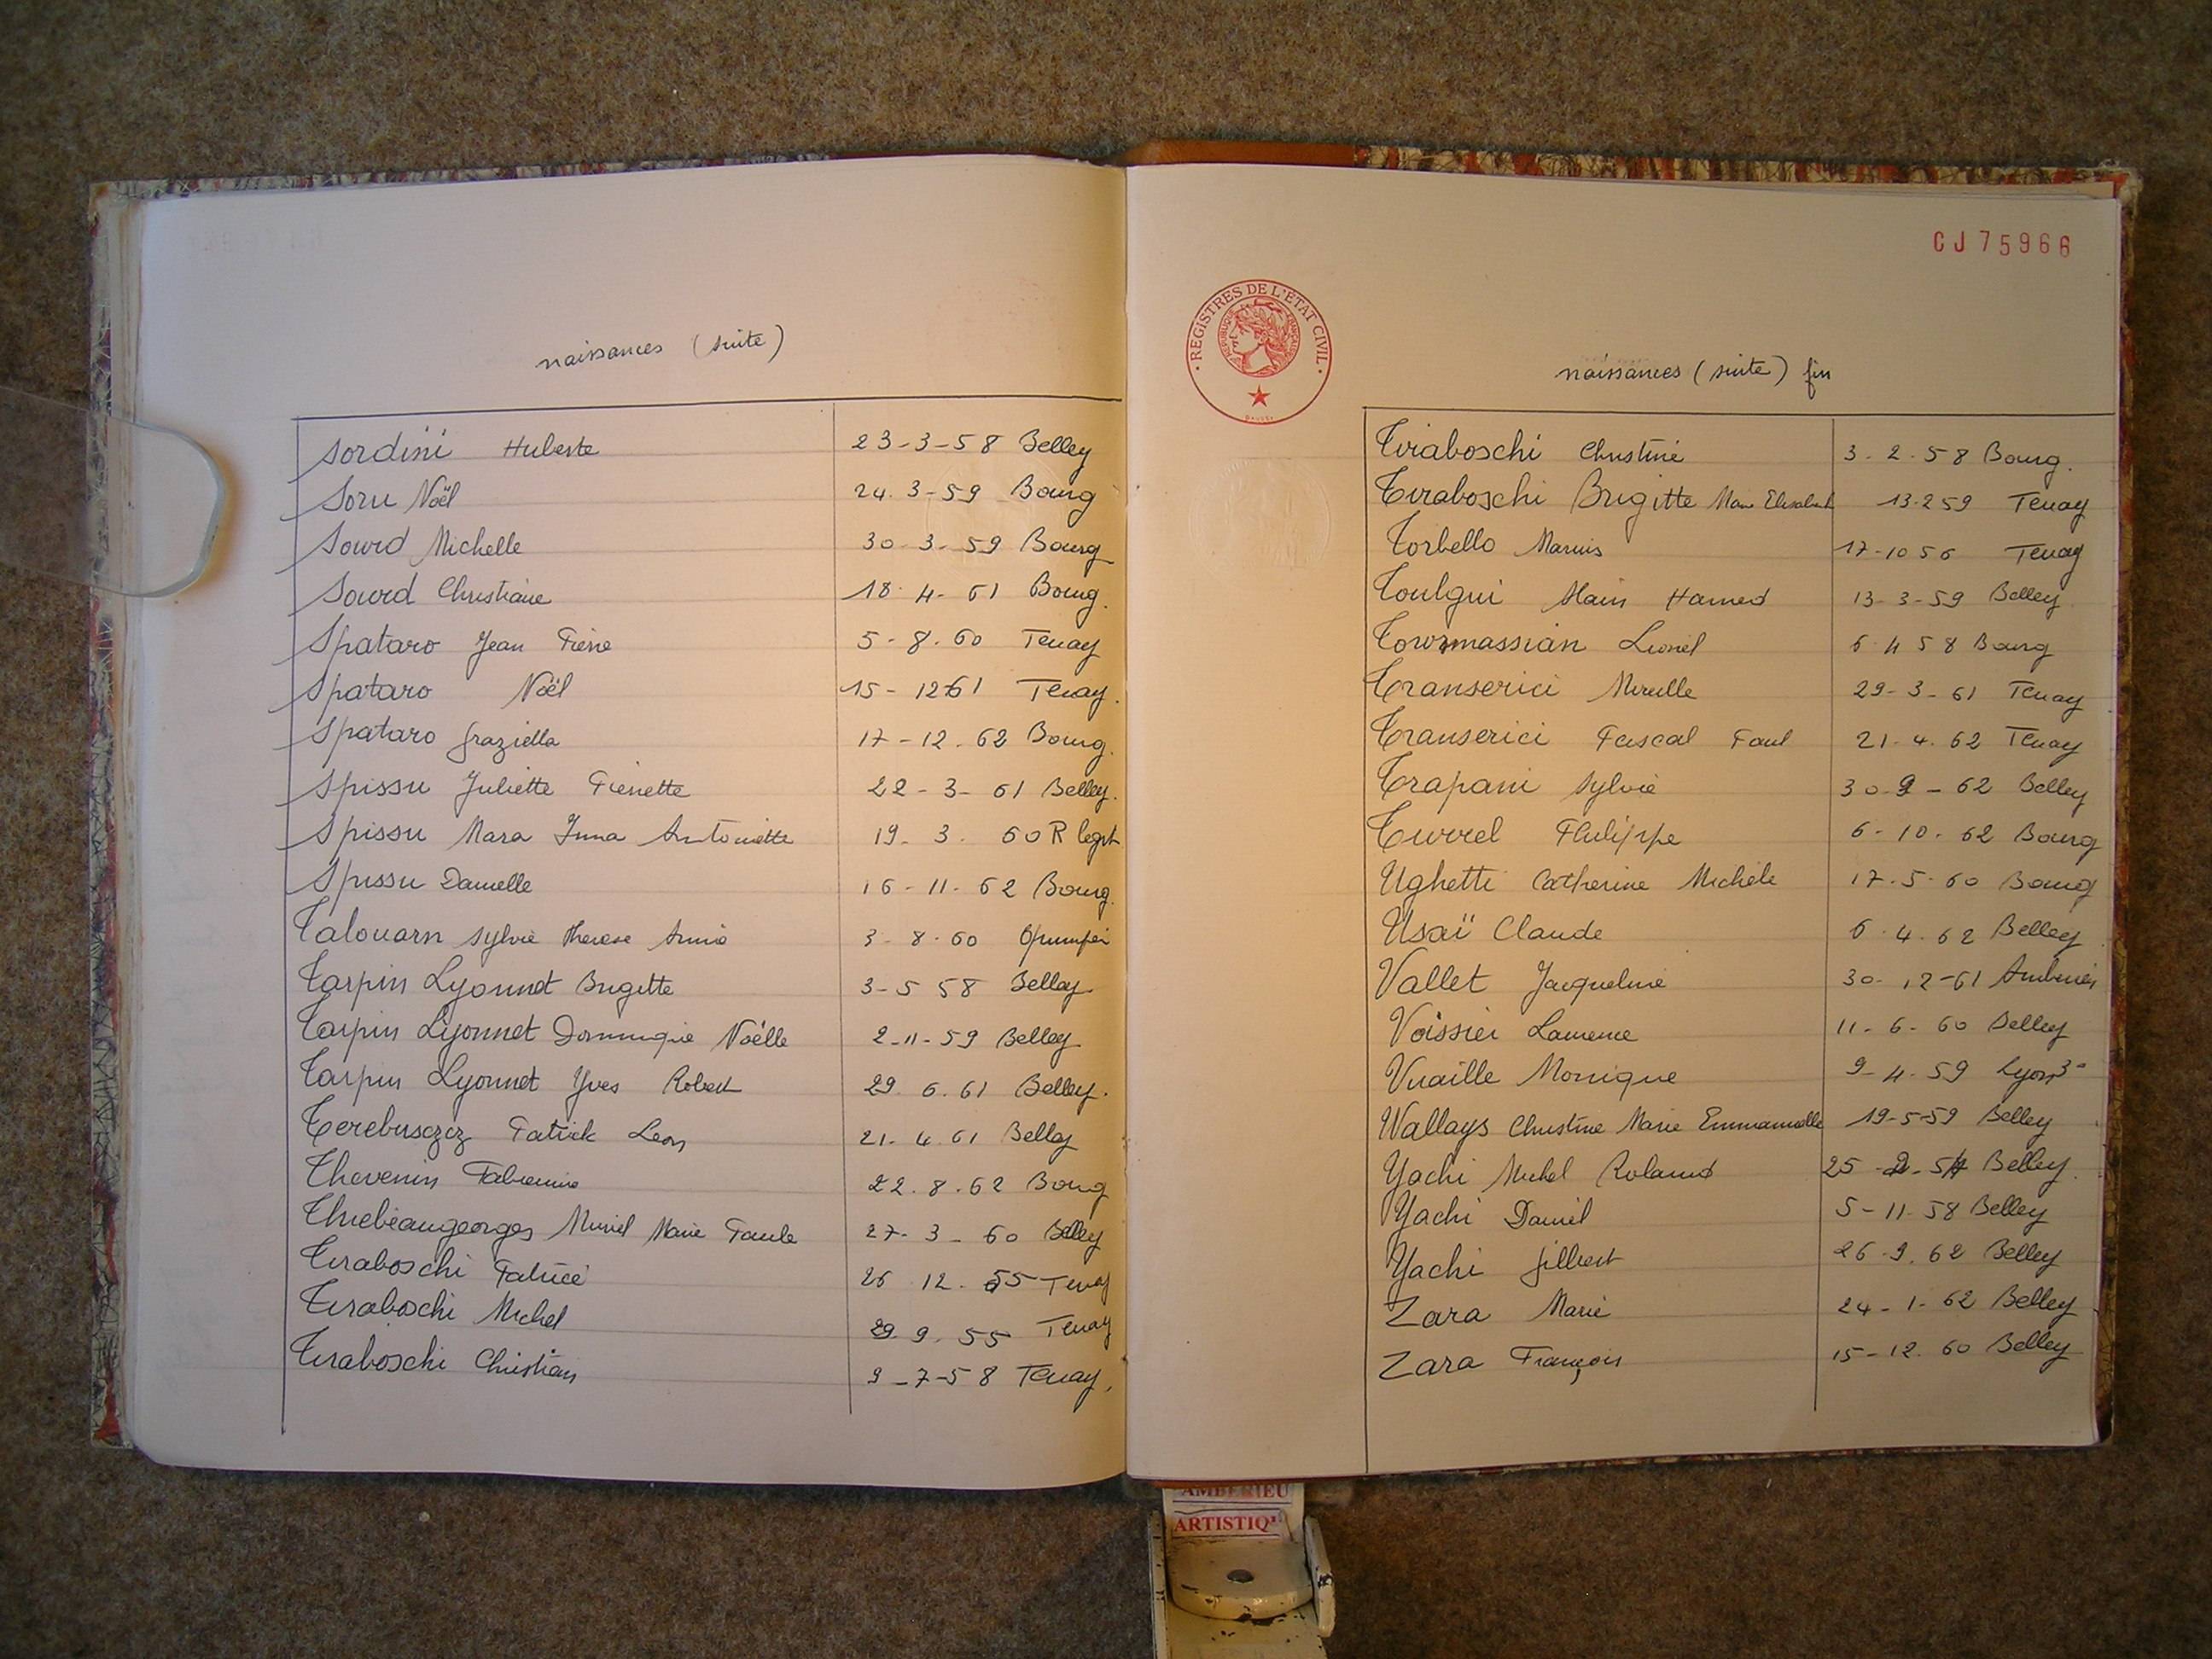 naissances (suite)
Sordini Huberte 23-3-58 Belley
Soru Noël 24.3-59 Bourg
Sourd Michelle 30-3-59 Bourg
Sourd Christiane 18.4-61 Bourg.
Spataro Jean Pierre 5-8.60 Tenay
Spataro Noël 15-1261 Tenay.
Spataro Graziella 17-12.62 Bourg.
Spissu Juliette Pierrette 22-3-61 Belley.
Spissu Mara Anna Antoinette 19-3. 60 R legit
Spissu Danielle 16-11-62 Bourg.
Talouarn Sylvie Therese Annie 3-8.60
Tarpin Lyonnet Brigitte 3-5 58 Belley
Tarpin Lyonnet Dominique Noëlle 2-11-59 Belley
Tarpin Lyonnet Yves Robert 29.6.61 Belley.
Terebusczcz Patrick Leon 21.4.61 Belley
Thevenin Fabienne 22.8.62 Bourg
Thiebeaugeorges Muriel Marie Paule 27-3-60 Belley
Tiraboschi Patrice 26 12.55 Tenay
Tiraboschi Michel 29.9.55 Tenay
Tiraboschi Christian 9-7-58 Tenay.
CJ 75966
REGISTRES DE L'ÉTAT CIVIL
RÉPUBLIQUE FRANÇAISE
naissances (suite) fin
Tiraboschi Christine 3.2.58 Bourg.
Tiraboschi Brigitte Marie Elisabeth 13-2 59 Tenay
Torbello Marius 17-10 56 Tenay
Toulgui Alain Hamed 13-3-59 Belley
Tourmassian Lionel 6 4 58 Bourg
Transerici Mireille 29-3-61 Tenay
Transerici Pascal Paul 21.4.62 Tenay
Trapani Sylvie 30-9-62 Belley
Turrel Philippe 6-10-62 Bourg
Ughetti Catherine Michèle 17.5.60 Bourg
Usaï Claude 6.4.62 Belley
Vallet Jacqueline 30-12-61
Voissier Laurence 11-6-60 Belley
Vuaille Monique 9-4.59 Lyon 3e
Wallays Christine Marie Emmanuelle 19-5-59 Belley
Yachi Michel Roland 25-2-57 Belley.
Yachi Daniel 5-11-58 Belley
Yachi Gilbert 26.9.62 Belley
Zara Marie 24-1-62 Belley
Zara François 15-12.60 Belley
AMBERIEU
ARTISTIQ